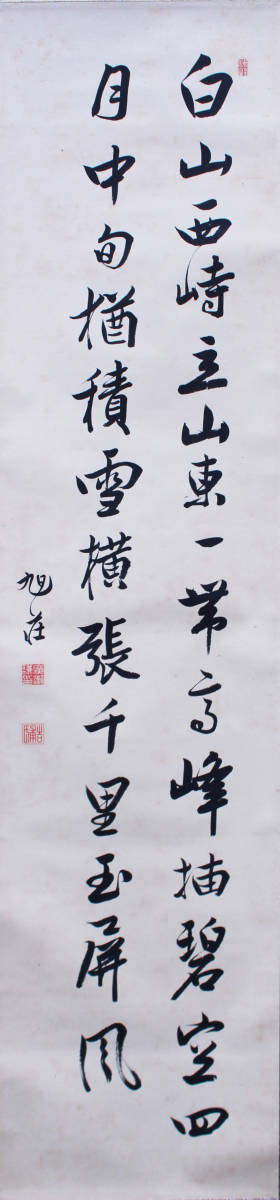 白山西峙立山東一帯高峰抽碧空四
月中旬猶積雪横張千里玉屏風
旭荘